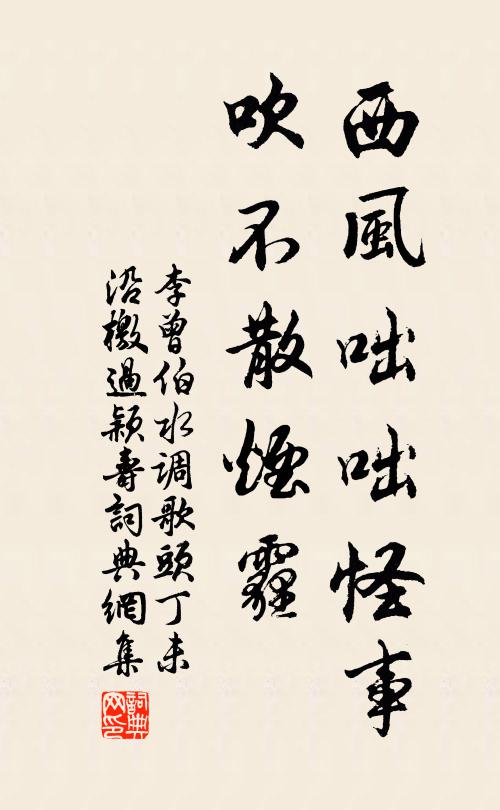 西風咄咄怪事
吹不散煙霾
李曾伯水调歌頭丁未
沿檄過潁壽詞典網集
詞典网印